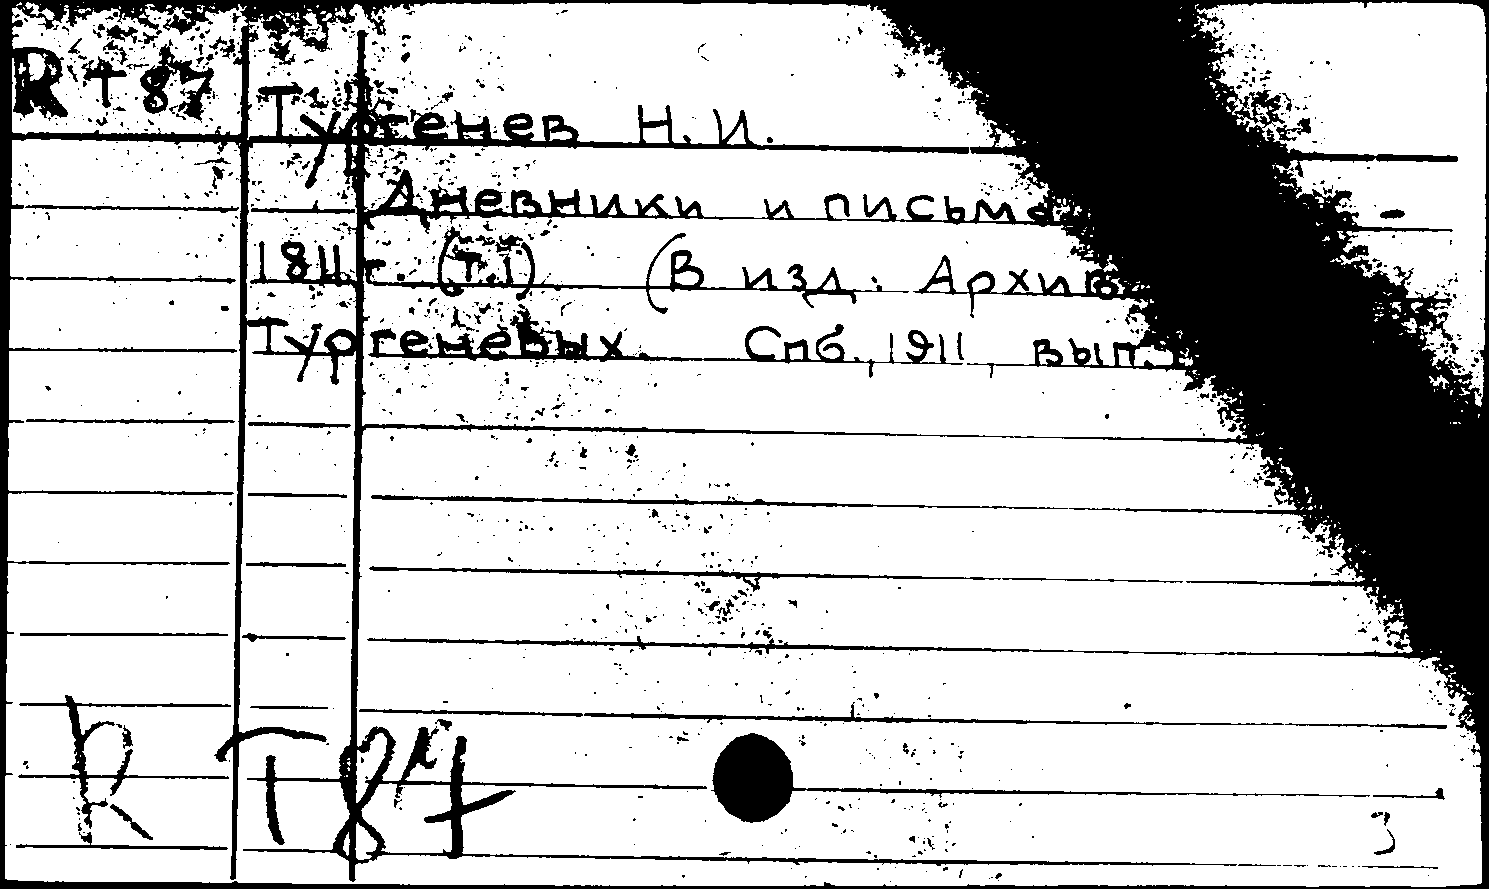 R T 87
Тургенев Н. И.
Дневники и письма -
1811 г. (т.1) (В изд.: Архив
Тургеневых. Спб., 1911, вып.1
R T 87
3